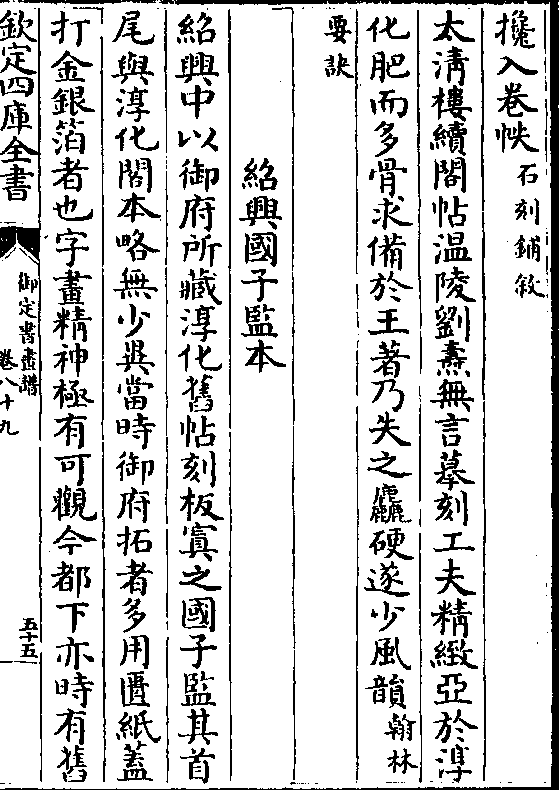 攙入卷帙石刻鋪敘
太清樓續閣帖温陵劉燾無言摹刻工夫精緻亞於淳
化肥而多骨求備於王著乃失之麤硬遂少風韻翰林
要訣
紹興國子監本
紹興中以御府所藏淳化舊帖刻板寘之國子監其首
尾與淳化閣本略無少異當時御府拓者多用匱紙蓋
打金銀箔者也字畫精神極有可觀今都下亦時有舊
欽定四庫全書
御定書畫譜
卷八十九
五十五